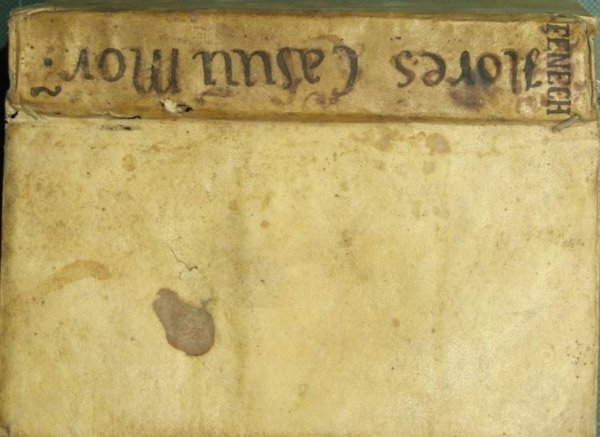 Flores Casuu Mor̃:
FENECH